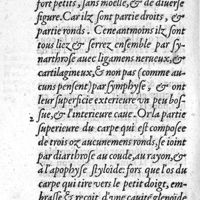 fort petits, sans moelle, & de diverse
figure. Car ilz sont partie droits, &
partie ronds. Ceneantmoins ilz sont
tous liez & serrez ensemble par sy-
narthrose avec ligamens nerueux, &
cartilagineux, & non pas (comme au-
cuns pensent) par symphyse, & ont
leur superficie exterieure vn peu bos-
sue, & l'interieure caue. Or la partie
superieure du carpe qui est composee
de trois oz aucunemens ronds, se ioint
par diarthrose au coude, au rayon, &
à l'apophyse styloide: fors que l'os du
carpe qui tire vers le petit doigt, em-
brasse & reçoit d'vne cauité glenoide